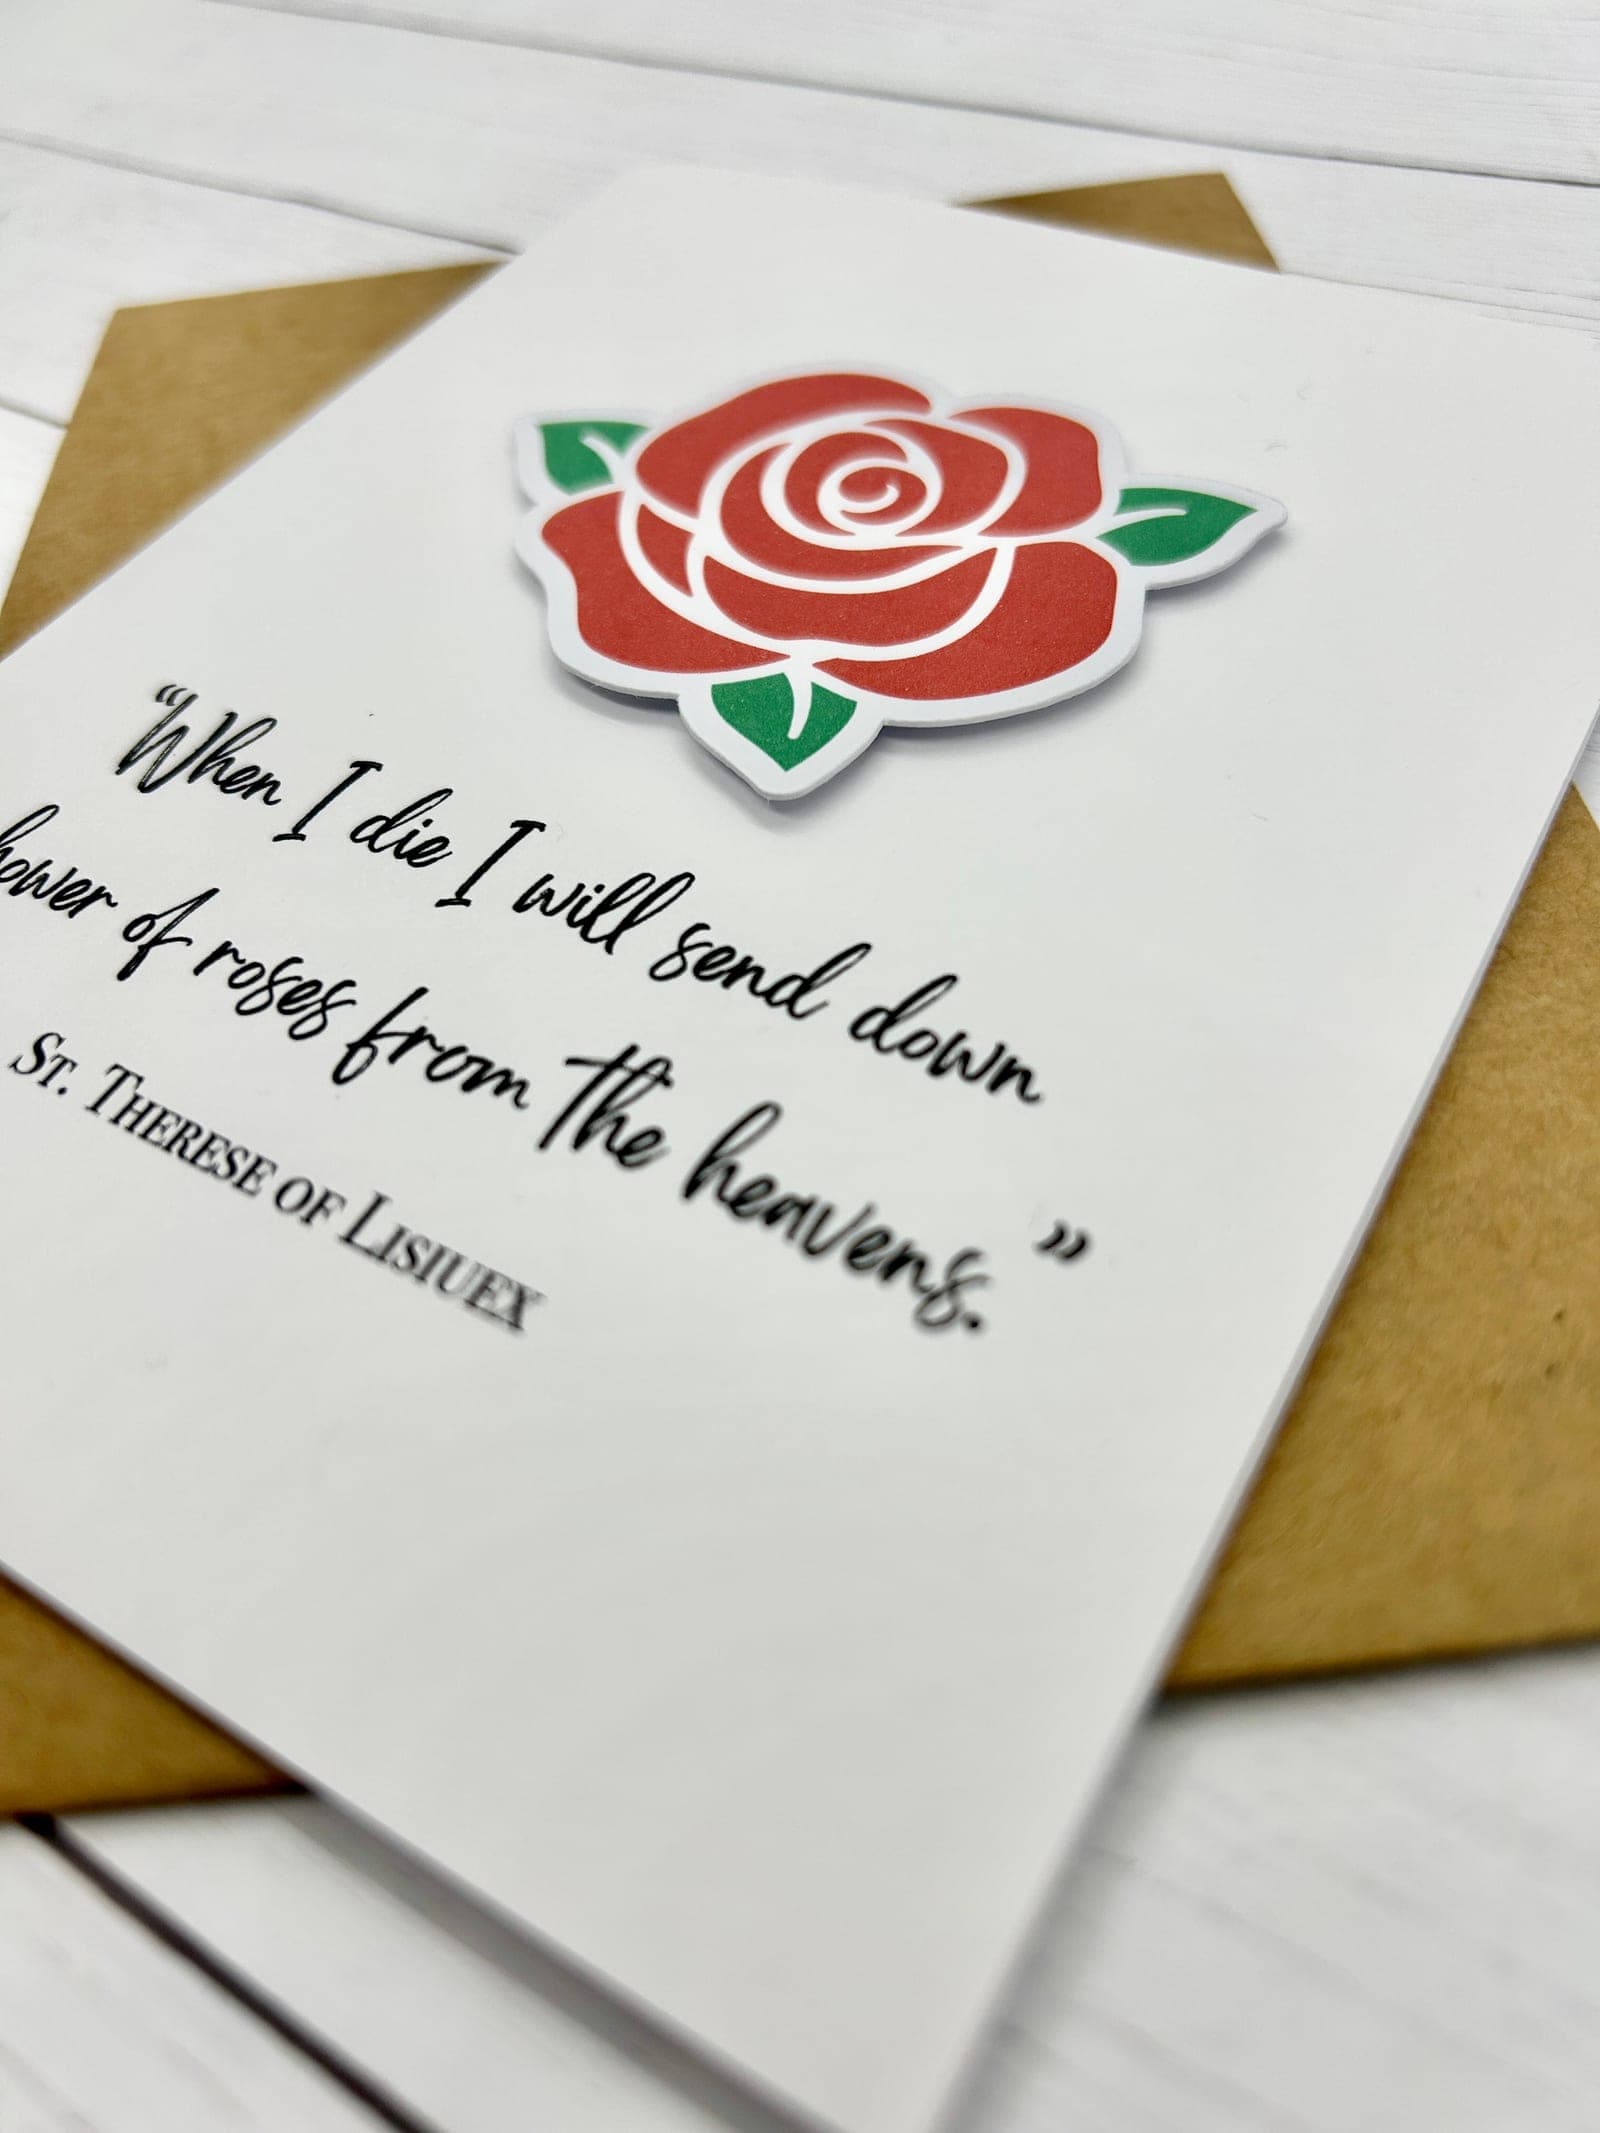 “When I die I will send down
hower of roses from the heavens.”
St. Therese of Lisiuex